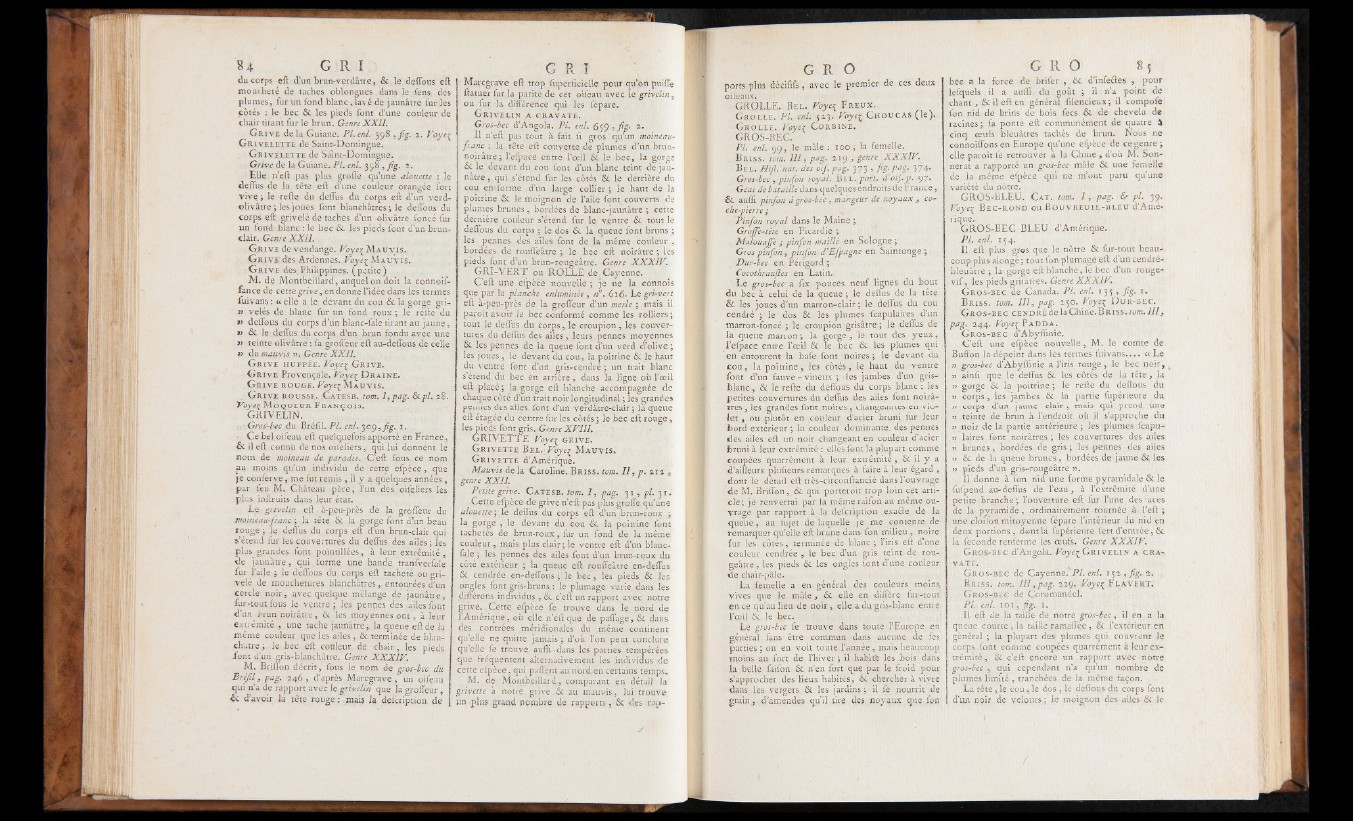 84 G R I
du corps est d'un brun-verdâtre, & le dessous est
moucheté de taches oblongues dans le sens des
plumes, sur un fond blanc, lavé de jaunâtre sur les
côtés : le bec & les pieds sont d'une couleur de
chair tirant sur le brun. Genre XXII.
GRIVE de la Guiane. Pl. enl. 398, fig. 2. Voyez
GRIVELETTE de Saint-Domingue.
GRIVELETTE de Saint-Domingue.
Grive de la Guiane. Pl. enl. 398, fig. 2.
Elle n'est pas plus grosse qu'une alouette : le
dessus de la tête est d'une couleur orangée fort
vive ; le reste du dessus du corps est d'un verd-
olivâtre ; les joues sont blanchâtres ; le dessous du
corps est grivelé de taches d'un olivâtre foncé sur
un fond blanc : le bec & les pieds sont d'un brun-
clair. Genre XXII.
GRIVE de vendange. Voyez MAUVIS.
GRIVE des Ardennes. Voyez MAUVIS.
GRIVE des Philippines. (petite)
M. de Montbeillard, auquel on doit la connois-
sance de cette grive, en donne l'idée dans les termes
suivans : « elle a le devant du cou & la gorge gri-
» velés de blanc sur un fond roux ; le reste du
» dessous du corps d'un blanc-sale tirant au jaune,
» & le dessus du corps d'un brun fondu avec une
» teinte olivâtre : sa grosseur est au-dessous de celle
» du mauvis ». Genre XXII.
GRIVE HUPPÉE. Voyez GRIVE.
GRIVE Provençale. Voyez DRAINE.
GRIVE ROUGE. Voyez MAUVIS.
GRIVE ROUSSE. CATESB. tom. I, pag. & pl. 28.
Voyez MOQUEUR FRANÇOIS.
GRIVELIN.
Gros-bec du Brésil. Pl. enl. 309, fig. 1.
Ce bel oiseau est quelquefois apporté en France,
& il est connu de nos oiseliers, qui lui donnent le
nom de moineau de paradis. C'est sous ce nom
au moins qu'un individu de cette espèce, que
je conserve, me fut remis, il y a quelques années,
par feu M. Château père, l'un des oiseliers les
plus instruits dans leur état.
Le grivelin est à-peu-près de la grosseur du
moineau-franc ; la tête & la gorge sont d'un beau
rouge ; le dessus du corps est d'un brun-clair qui
s'étend sur les couvertures du dessus des ailes ; les
plus grandes sont pointillées, à leur extrémité,
de jaunâtre, qui forme une bande transversale
sur l'aile ; le dessous du corps est tacheté ou gri-
velé de mouchetures blanchâtres, entourées d'un
cercle noir, avec quelque mélange de jaunâtre,
sur-tout sous le ventre ; les pennes des ailes sont
d'un brun noirâtre, & les moyennes ont, à leur
extrémité, une tache jaunâtre ; la queue est de la
même couleur que les ailes, & terminée de blan-
châtre ; le bec est couleur de chair, les pieds
sont d'un gris-blanchâtre. Genre XXXIV.
M. Brisson décrit, sous le nom de gros-bec du
Brésil, pag. 246, d'après Marcgrave, un oiseau
qui n'a de rapport avec le grivelin que la grosseur,
& d'avoir la tête rouge : mais la description de
G R I
Marcgrave est trop superficielle pour qu'on puisse
statuer sur la parité de cet oiseau avec le grivelin,
ou sur la différence qui les sépare.
GRIVELIN A CRAVATE.
Gros-bec d'Angola. Pl. enl. 659, fig. 2.
Il n'est pas tout à fait si gros qu'un moineau-
franc : la tête est couverte de plumes d'un brun-
noirâtre ; l'espace entre l'œil & le bec, la gorge
& le devant du cou sont d'un blanc teint de jau-
nâtre, qui s'étend sur les côtés & le derrière du
cou en forme d'un large collier ; le haut de la
poitrine & le moignon de l'aile sont couverts de
plumes brunes, bordées de blanc-jaunâtre ; cette
dernière couleur s'étend sur le ventre & tout le
dessous du corps ; le dos & la queue sont bruns ;
les pennes des ailes sont de la même couleur,
bordées de roussâtre ; le bec est noirâtre ; les
pieds sont d'un brun-rougeâtre. Genre XXXIV.
GRI-VERT ou ROLLE de Cayenne.
C'est une espèce nouvelle ; je ne la connois
que par la planche enluminée, n°. 616. Le gri-vert
est à-peu-près de la grosseur d'un merle ; mais il
paroît avoir le bec conformé comme les rolliers ;
tout le dessus du corps, le croupion, les couver-
tures du dessus des ailes, leurs pennes moyennes
& les pennes de la queue sont d'un verd d'olive ;
les joues, le devant du cou, la poitrine & le haut
du ventre sont d'un gris-cendré ; un trait blanc
s'étend du bec en arrière, dans la ligne où l'œil
est placé ; la gorge est blanche accompagnée de
chaque côté d'un trait noir longitudinal ; les grandes
pennes des ailes sont d'un verdâtre-clair ; la queue
est étagée du centre sur les côtés ; le bec est rouge,
les pieds sont gris. Genre XVIII.
GRIVETTE. Voyez GRIVE.
GRIVETTE BEL. Voyez MAUVIS.
GRIVETTE d'Amérique.
Mauvis de la Caroline. BRISS. tom. II, p. 212,
genre XXII.
Petite grive. CATESB. tom. I, pag. 31, pl. 31.
Cette espèce de grive n'est pas plus grosse qu'une
alouette ; le dessus du corps est d'un brun-roux ;
la gorge, le devant du cou & la poitrine sont
tachetés de brun-roux, sur un fond de la même
couleur, mais plus clair ; le ventre est d'un blanc-
sale ; les pennes des ailes sont d'un brun-roux du
côté extérieur ; la queue est roussâtre en-dessus
& cendrée en-dessous ; le bec, les pieds & les
ongles sont gris-bruns : le plumage varie dans les
différens individus, & c'est un rapport avec notre
grive. Cette espèce se trouve dans le nord de
l'Amérique, où elle n'est que de passage, & dans
des contrées méridionales du même continent
qu'elle ne quitte jamais ; d'où l'on peut conclure
qu'elle se trouve aussi dans les parties tempérées
que fréquentent alternativement les individus de
cette espèce, qui passent au nord en certains temps.
M. de Montbeillard, comparant en détail la
grivette à notre grive & au mauvis, lui trouve
un plus grand nombre de rapports, & des rap-
G R O
ports plus décisifs, avec le premier de ces deux
oiseaux.
GROLLE. BEL. Voyez FREUX.
GROLLE. Pl. enl. 523. Voyez CHOUCAS (le).
GROLLE. Voyez CORBINE.
GROS-BEC.
Pl. enl. 99, le mâle : 100, la femelle.
BRISS. tom. III, pag. 219, genre XXXIV.
BEL. Hist. nat. des ois. pag. 373, fig. pag. 374.
Gros-bec, pinson royal. BEL. port. d'ois. p. 97.
Geai de bataille dans quelques endroits de France,
& aussi pinson à gros-bec, mangeur de noyaux, co-
che-pierre ;
Pinson royal dans le Maine ;
Grosse-tête en Picardie ;
Malouasse ; pinson maillé en Sologne ;
Gros pinson, pinson d'Espagne en Saintonge ;
Dur-bec en Périgord ;
Cocothraustes en Latin.
Le gros-bec a six pouces neuf lignes du bout
du bec à celui de la queue ; le dessus de la tête
& les joues d'un marron-clair ; le dessus du cou
cendré ; le dos & les plumes scapulaires d'un
marron-foncé ; le croupion grisâtre ; le dessus de
la queue marron ; la gorge, le tour des yeux,
l'espace entre l'œil & le bec & les plumes qui
en entourent la base sont noires ; le devant du
cou, la poitrine, les côtés, le haut du ventre
sont d'un fauve-vineux ; les jambes d'un gris-
blanc, & le reste du dessous du corps blanc : les
petites couvertures du dessus des ailes sont noirâ-
tres, les grandes sont noires, changeantes en vio-
let, ou plutôt en couleur d'acier bruni sur leur
bord extérieur ; la couleur dominante des pennes
des ailes est un noir changeant en couleur d'acier
bruni à leur extrémité : elles sont la plupart comme
coupées quarrément à leur extrémité, & il y a
d'ailleurs plusieurs remarques à faire à leur égard,
dont le détail est très-circonstancié dans l'ouvrage
de M. Brisson, & qui porteroit trop loin cet arti-
cle ; je renverrai par la même raison au même ou-
vrage par rapport à la description exacte de la
queue, au sujet de laquelle je me contente de
remarquer qu'elle est brune dans son milieu, noire
sur les côtés, terminée de blanc ; l'iris est d'une
couleur cendrée, le bec d'un gris teint de rou-
geâtre, les pieds & les ongles sont d'une couleur
de chair-pâle.
La femelle a en général des couleurs moins
vives que le mâle, & elle en diffère sur-tout
en ce qu'au lieu de noir, elle a du gris-blanc entre
l'œil & le bec.
Le gros-bec se trouve dans toute l'Europe en
général sans être commun dans aucune de ses
parties ; on en voit toute l'année, mais beaucoup
moins au fort de l'hiver ; il habite les bois dans
la belle saison & n'en sort que par le froid pour
s'approcher des lieux habités, & chercher à vivre
dans les vergers & les jardins ; il se nourrit de
grain, d'amendes qu'il tire des noyaux que son
G R O 85
bec a la force de briser, & d'insectes, pour
lesquels il a aussi du goût ; il n'a point de
chant, & il est en général silencieux ; il compose
son nid de brins de bois secs & de chevelu de
racines ; sa ponte est communément de quatre à
cinq œufs bleuâtres tachés de brun. Nous ne
connoissons en Europe qu'une espèce de ce genre ;
elle paroît se retrouver à la Chine, d'où M. Son-
nerat a rapporté un gros-bec mâle & une femelle
de la même espèce qui ne m'ont paru qu'une
variété du nôtre.
GROS-BLEU. CAT. tom. I, pag. & pl. 39.
Voyez BEC-ROND ou BOUVREUIL-BLEU d'Amé-
rique.
GROS-BEC BLEU d'Amérique.
Pl. enl. 154.
Il est plus gros que le nôtre & sur-tout beau-
coup plus alongé ; tout son plumage est d'un cendré-
bleuâtre ; la gorge est blanche, le bec d'un rouge-
vif, les pieds grisâtres. Genre XXXIV.
GROS-BEC de Canada. Pl. enl. 135, fig. 1.
BRISS. tom. III, pag. 250. Voyez DUR-BEC.
GROS-BEC CENDRÉ de la Chine. BRISS. tom. III,
pag. 244. Voyez PADDA.
GROS-BEC d'Abyssinie.
C'est une espèce nouvelle, M. le comte de
Buffon la dépeint dans les termes suivans.... « Le
» gros-bec d'Abyssinie a l'iris rouge, le bec noir,
» ainsi que le dessus & les côtés de la tête, la
» gorge & la poitrine ; le reste du dessous du
» corps, les jambes & la partie supérieure du
» corps d'un jaune clair, mais qui prend une
» teinte de brun à l'endroit où il s'approche du
» noir de la partie antérieure ; les plumes scapu-
» laires sont noirâtres ; les couvertures des ailes
» brunes, bordées de gris ; les pennes des ailes
» & de la queue brunes, bordées de jaune & les
» pieds d'un gris-rougeâtre ».
Il donne à son nid une forme pyramidale & le
suspend au-dessus de l'eau, à l'extrémité d'une
petite branche ; l'ouverture est sur l'une des faces
de la pyramide, ordinairement tournée à l'est ;
une cloison mitoyenne sépare l'intérieur du nid en
deux portions, dont la supérieure sert d'entrée, &
la seconde renferme les œufs. Genre XXXIV.
GROS-BEC d'Angola. Voyez GRIVELIN A CRA-
VATE.
GROS-BEC de Cayenne. Pl. enl. 152, fig. 2.
BRISS. tom. III, pag. 229. Voyez FLAVERT.
GROS-BEC de Coromandel.
Pl. enl. 101, fig. 1.
Il est de la taille de notre gros-bec, il en a la
queue courte, la taille ramassée, & l'extérieur en
général ; la plupart des plumes qui couvrent le
corps sont comme coupées quarrément à leur ex-
trémité, & c'est encore un rapport avec notre
gros-bec, qui cependant n'a qu'un nombre de
plumes limité, tranchées de la même façon.
La tête, le cou, le dos, le dessous du corps sont
d'un noir de velours ; le moignon des ailes & le